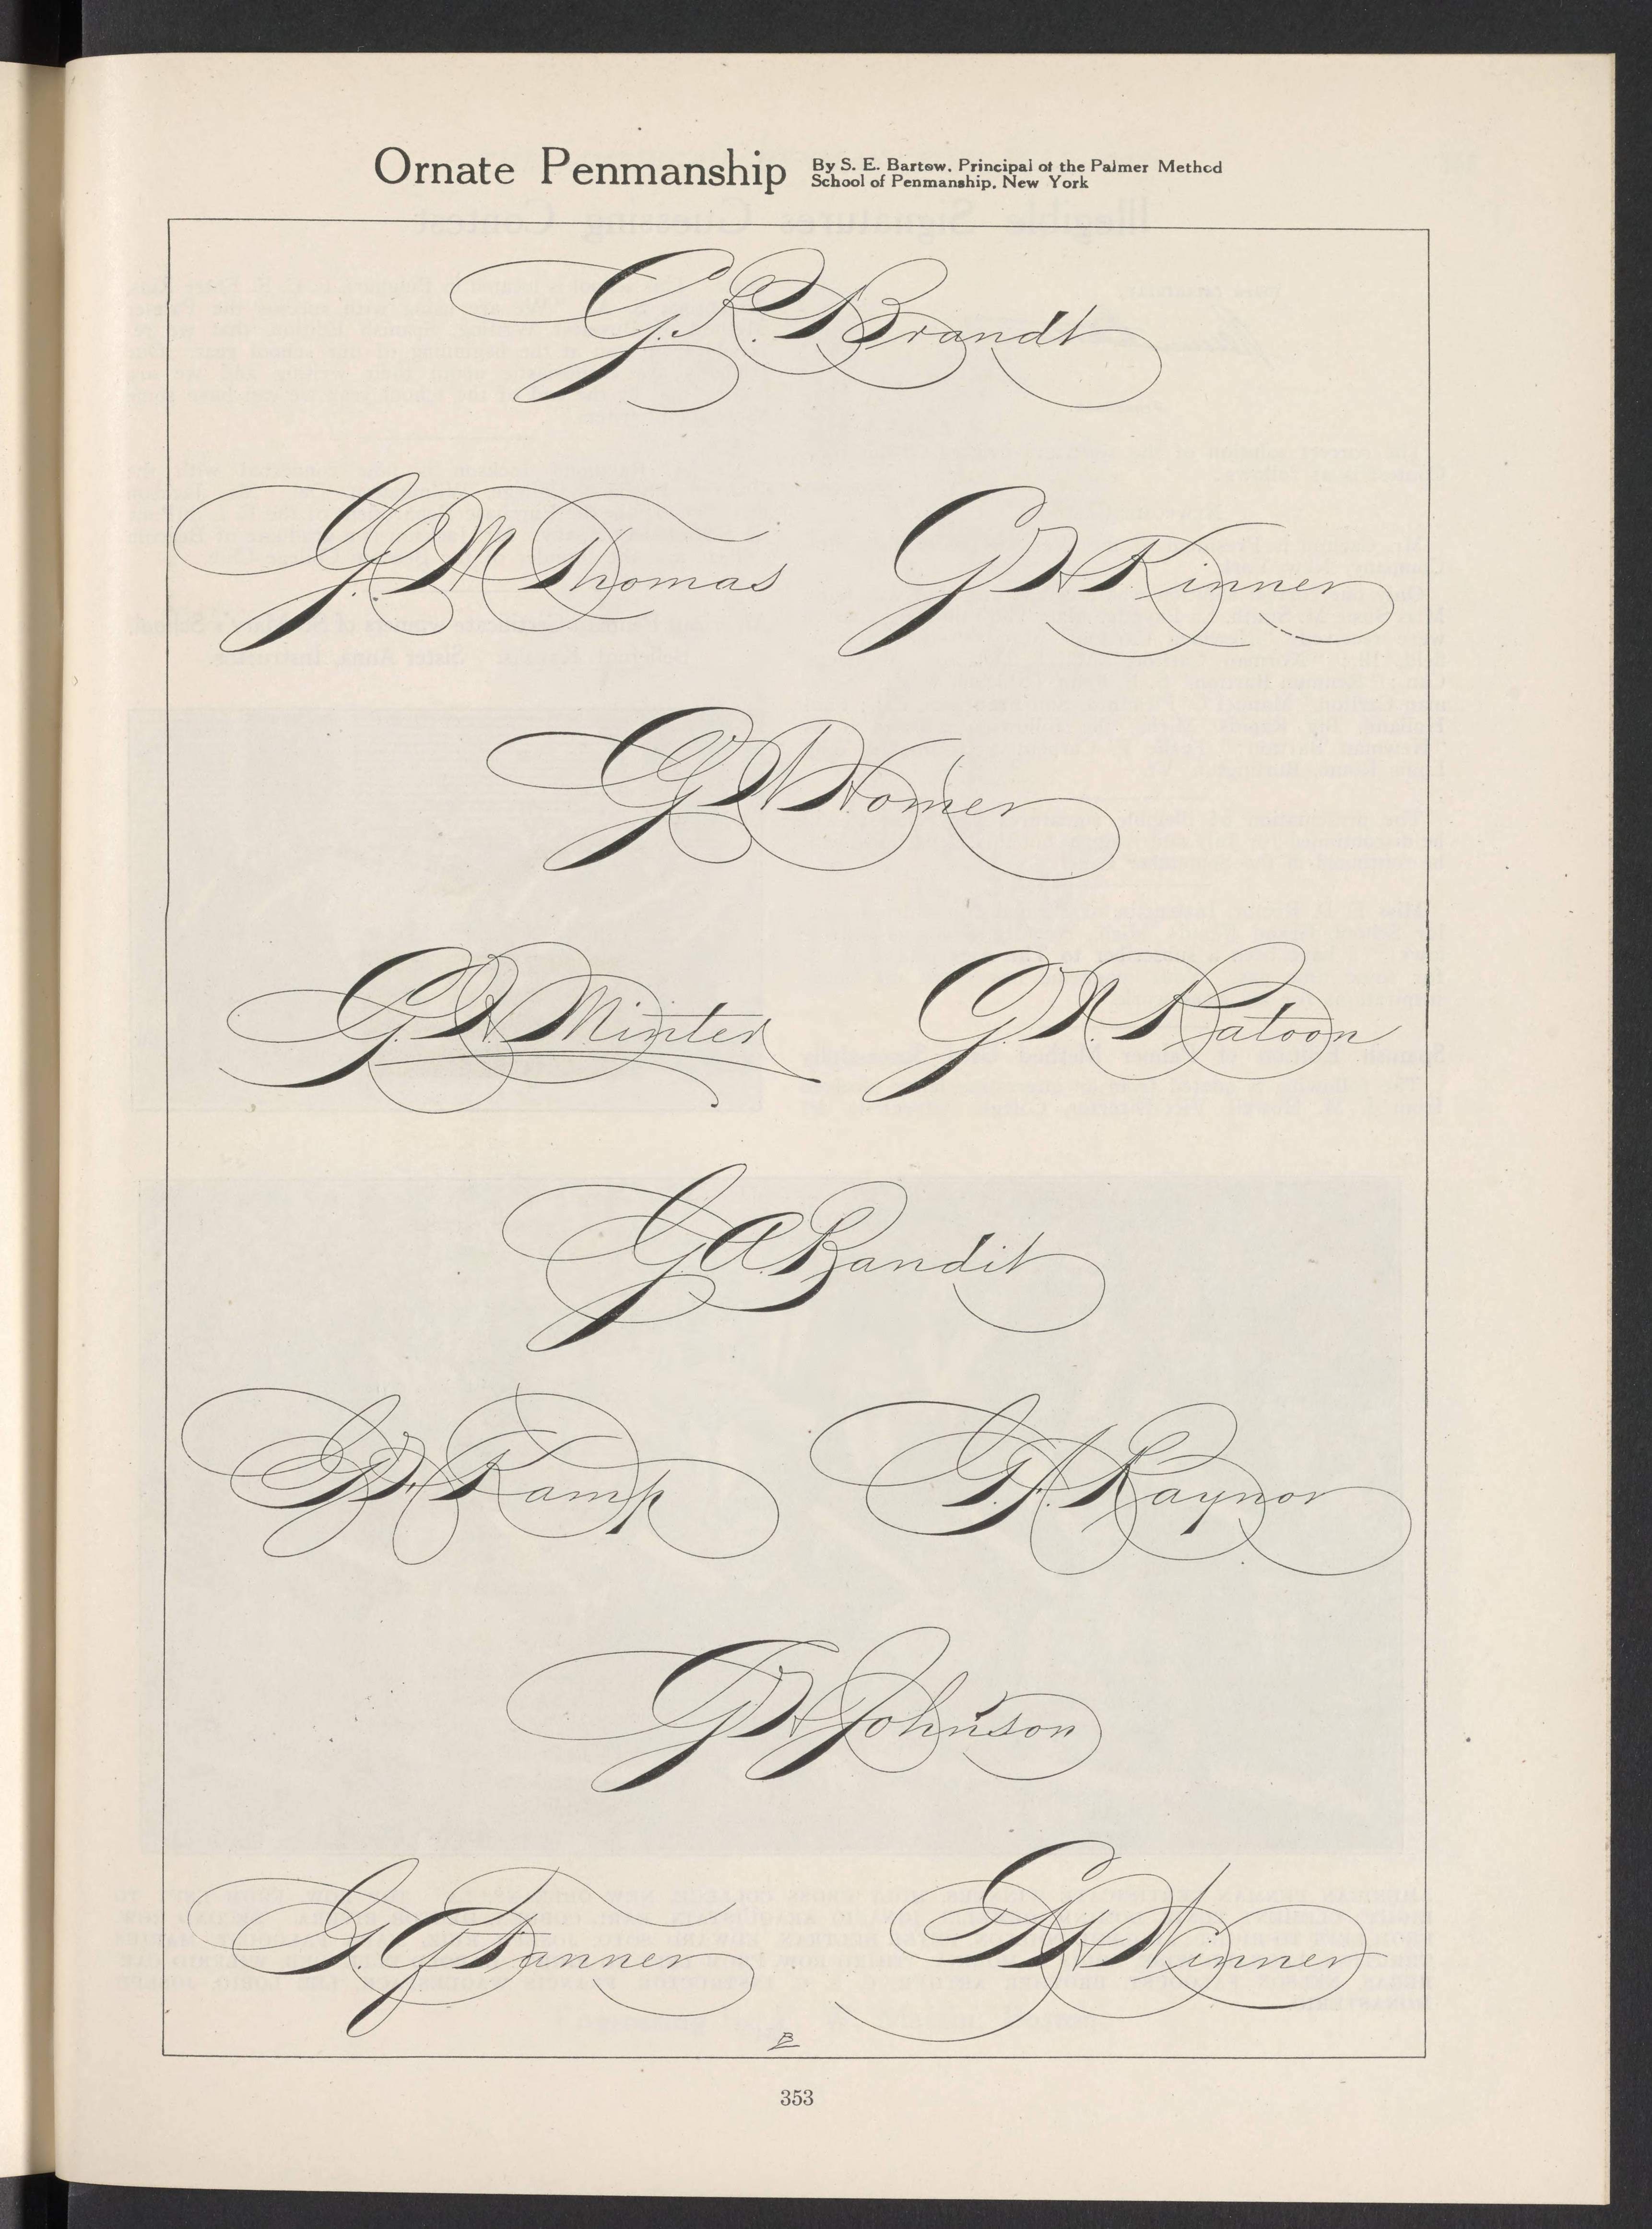 Ornate Penmanship
By S. E. Bartow, Principal of the Palmer Method
School of Penmanship, New York
G. R. Brandt
G. M Thomas
G H Kinner
G W Homer
G. H. Minter
G. N. Ratoon
G. A. Bandit
G. H. Kamp
G. A. Raynor
G H Johnson
G. G Tanner
G H Winner
B
353